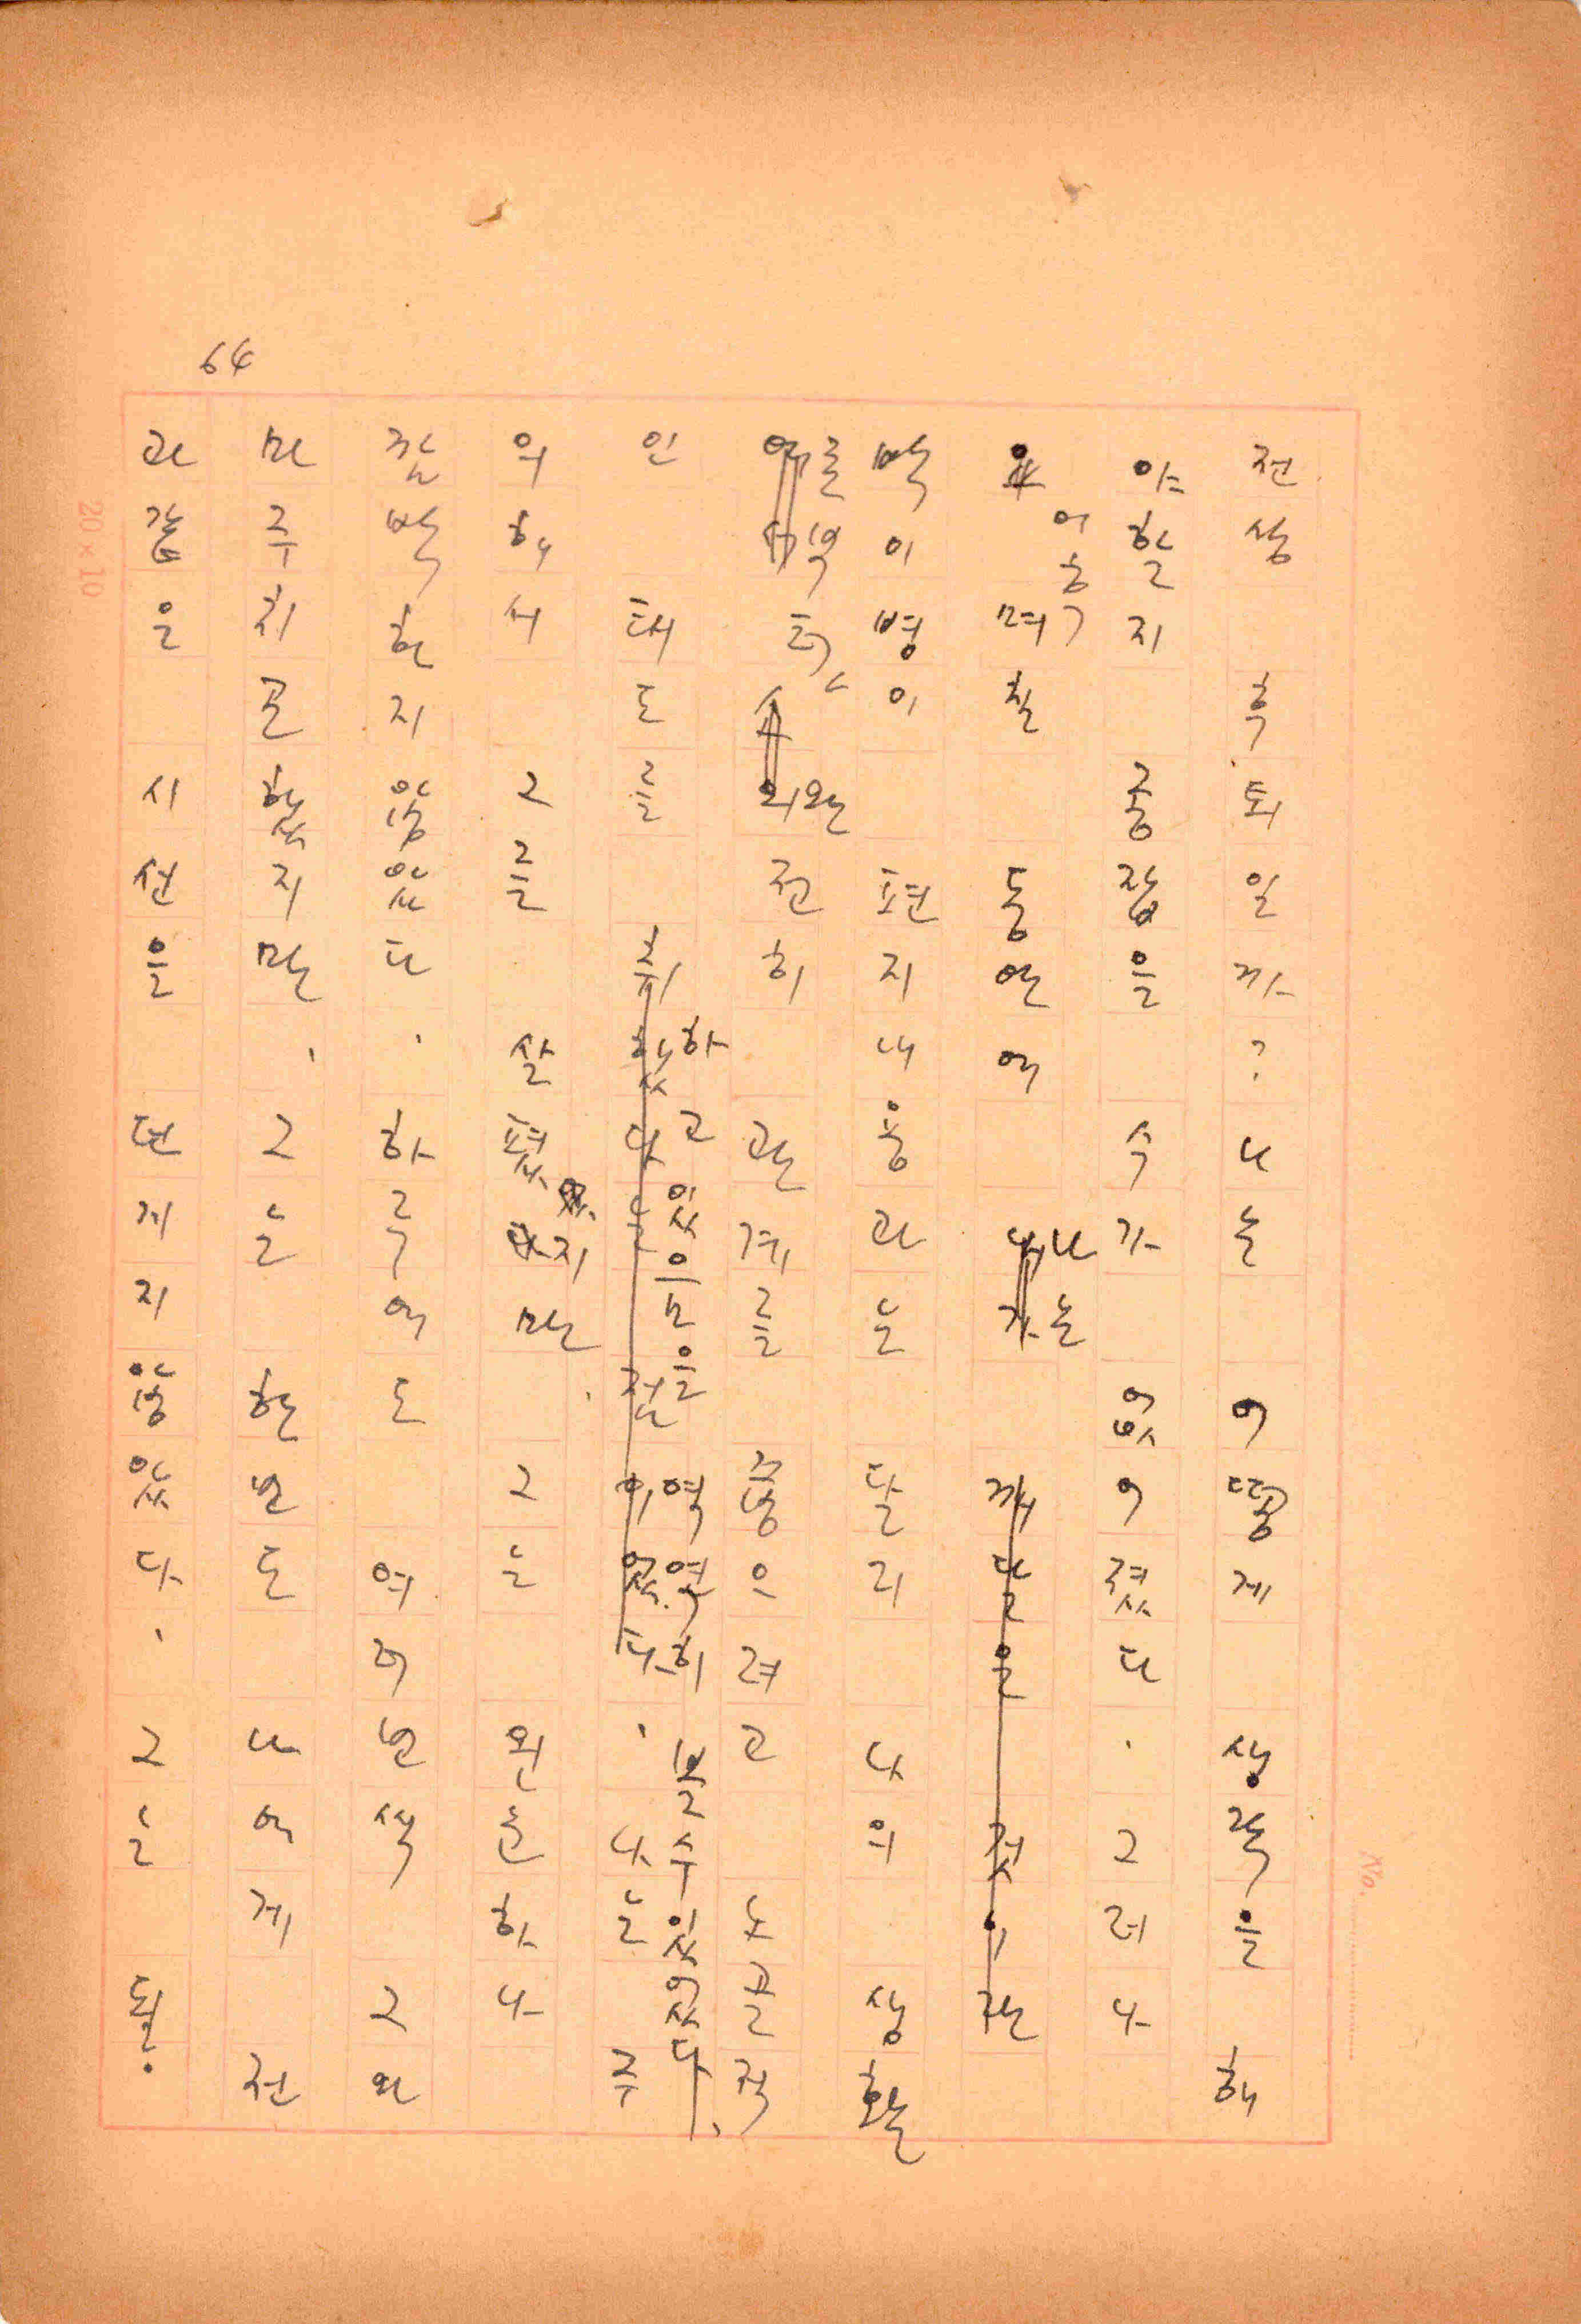 64
전상 혹퇴일까? 나는 어떻게 생각을 해
야할지 종잡을 수가 없어졌다. 그러나
며칠 동안에 나는 깨달은 것이란
백이병이 편지내용과는 달리 나의 생활
완전히 관계를 끊으려고 노골적
인 태도를 취하고 있음을 역연히 볼 수 있었다. 나는 주
의해서 그를 살폈지만, 그는 왼눈 하나
깜박하지 않았다. 하루에도 여러번씩 그와
마주치곤 했지만, 그는 한번도 나에게 전
과 같은 시선을 던지지 않았다. 그는 될
20×10
No.